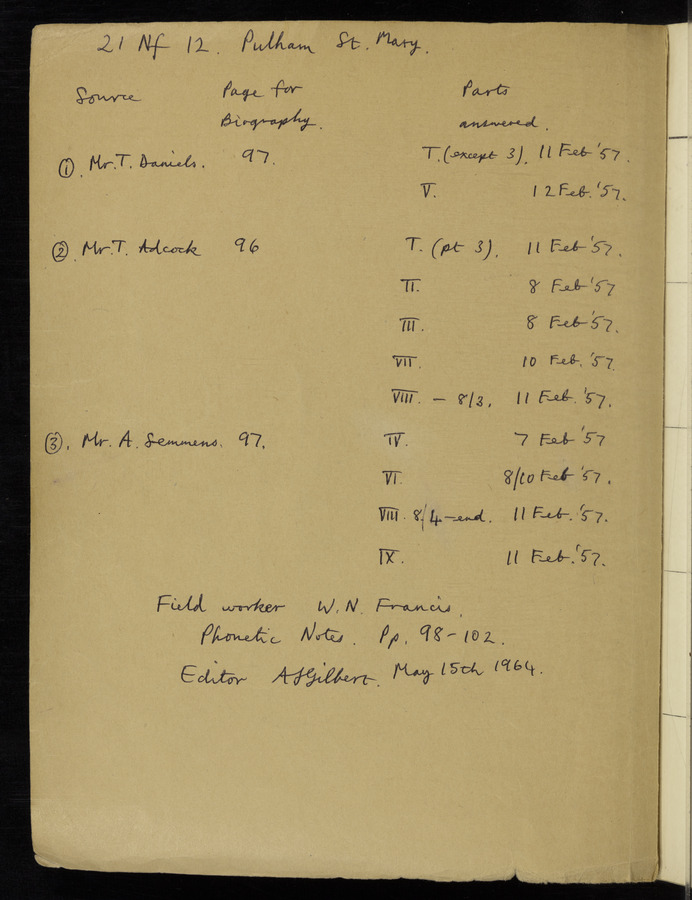 21 Nf 12. Pulham St. Mary.
Source Page for Biography. Parts answered.
① Mr. T. Daniels. 97. I. (except 3). 11 Feb '57.
V. 12 Feb. '57.
② Mr. T. Adcock 96 I. (pt 3). 11 Feb '57.
II. 8 Feb '57
III. 8 Feb '57.
VII. 10 Feb. '57.
VIII. – 8/3. 11 Feb. '57.
③. Mr. A. Semmens. 97. IV. 7 Feb '57
VI. 8/10 Feb '57.
VIII. 8/4–end. 11 Feb. '57.
IX. 11 Feb. '57.
Field worker W. N. Francis.
Phonetic Notes. Pp. 98–102.
Editor ASGilbert. May 15th 1964.